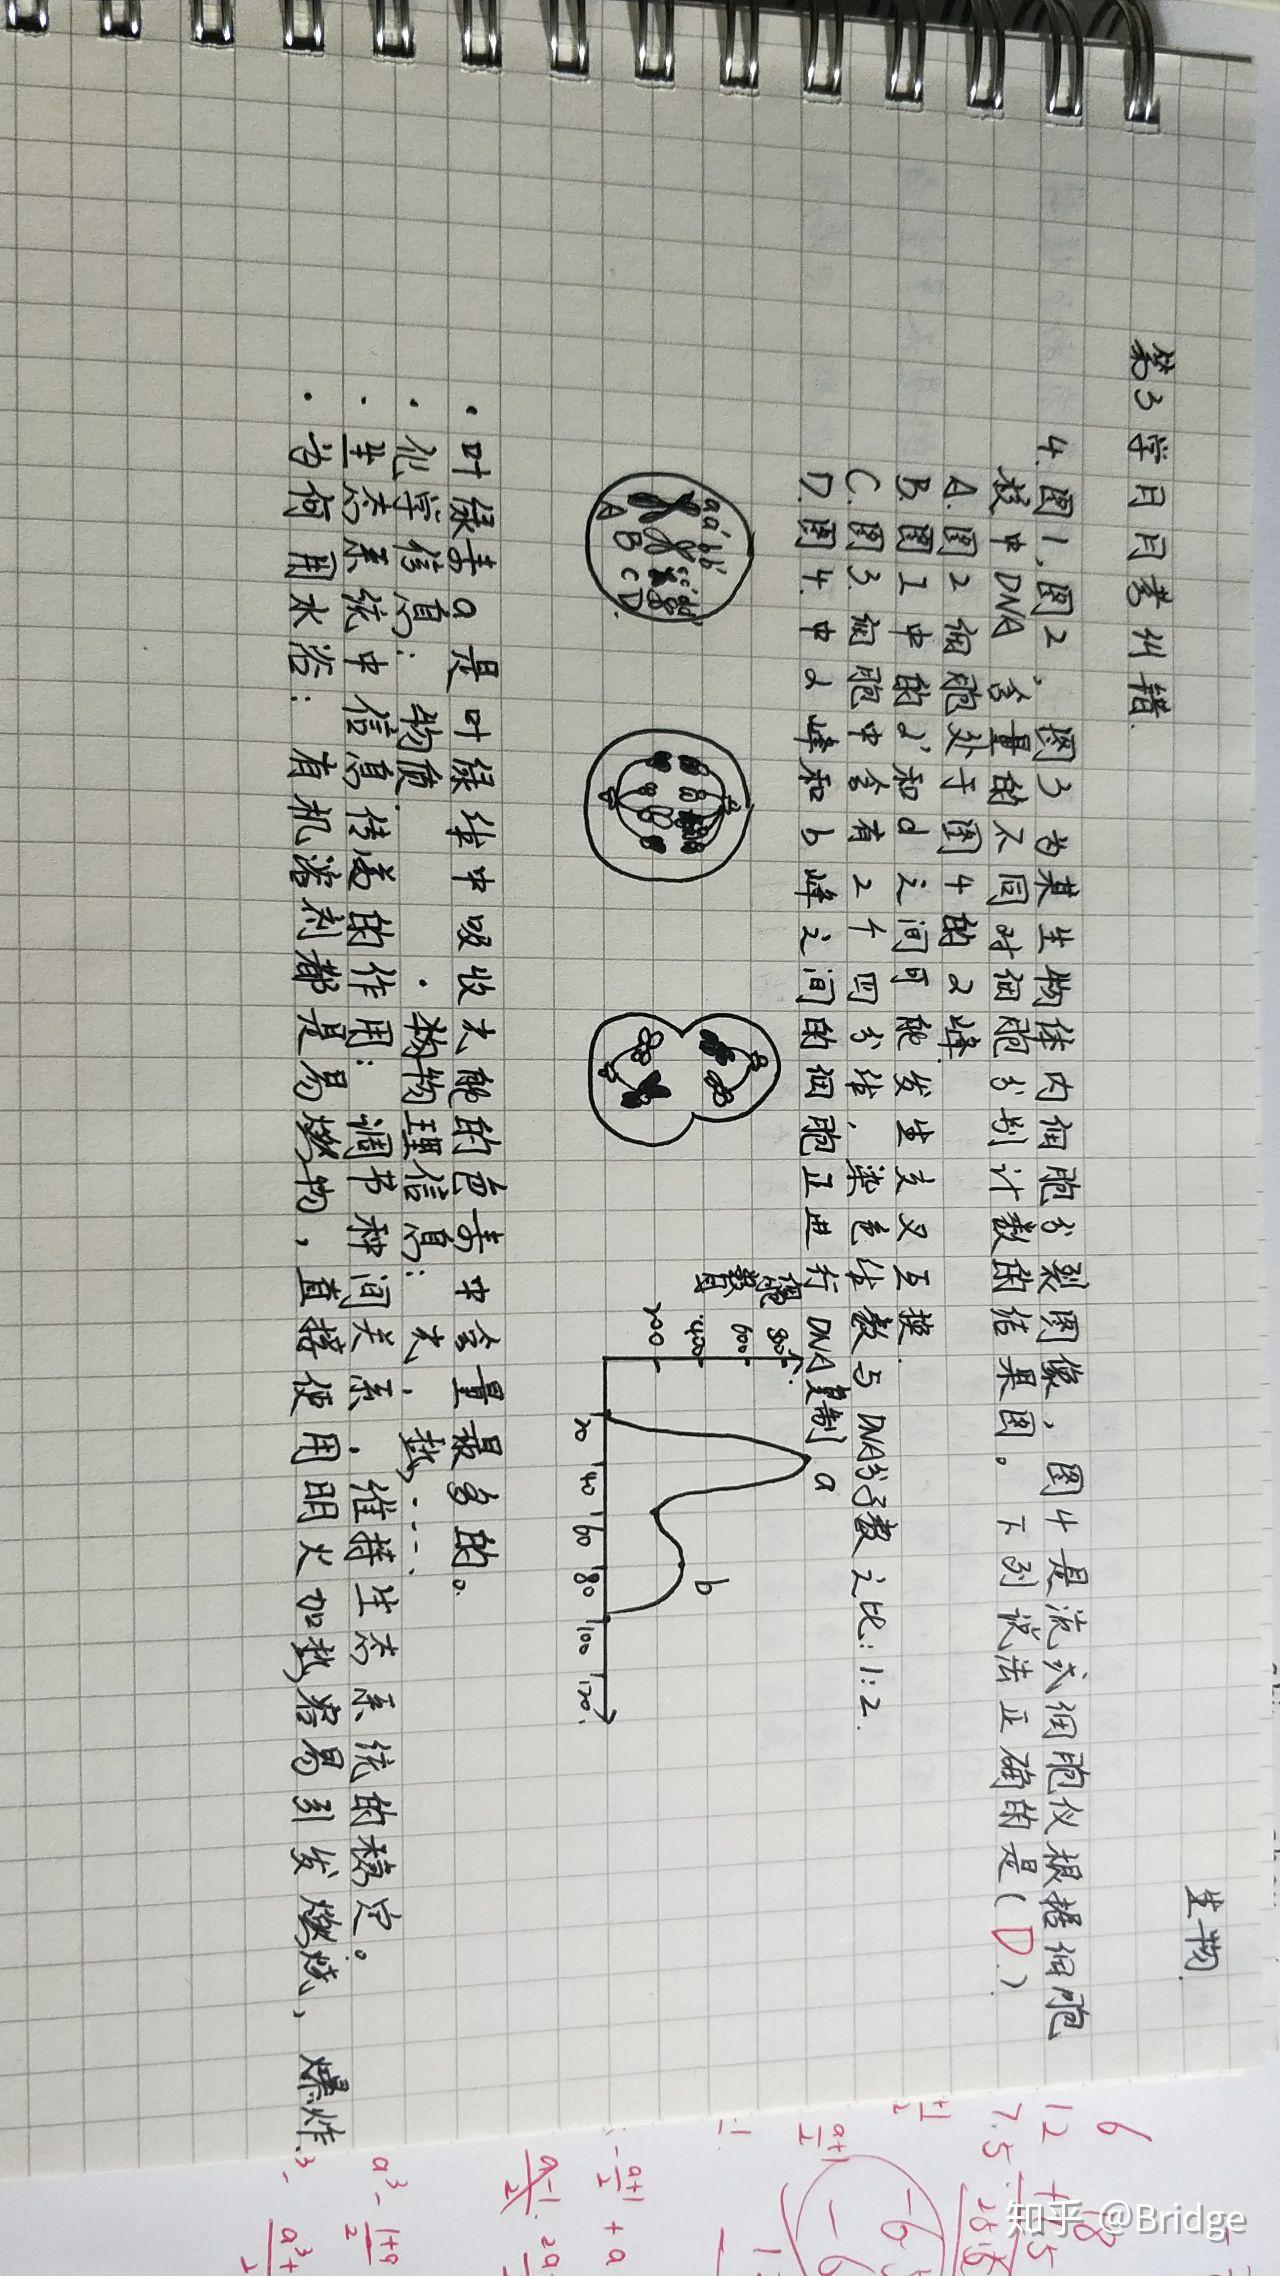 生物
第3学月月考纠错.
4.图1、图2、图3为某生物体内细胞分裂图像，图4是流式细胞仪根据细胞
中DNA含量的不同对细胞分别计数的结果图。下列说法正确的是(D)
A.图2细胞处于图4的2峰.
B.图1中的d'和d之间可能发生交叉互换.
C.图3.细胞中含有2个四分体，染色体数与DNA分子数之比：1:2.
D.图4.中2峰和b峰之间的细胞正进行DNA复制
aa' bb' cc' dd'
A B C D.
细胞
数目
800
600
400
200
20 40 60 80 100 120.
a
b
·叶绿素a是叶绿体中吸收光能的色素中含量最多的。
·化学信息：物质. ·物理信息：光，热.....
·生态系统中信息传递的作用：调节种间关系，维持生态系统的稳定。
·为何用水浴：有机溶剂都是易燃物，直接使用明火加热容易引发燃烧，爆炸.
6
12
7.5
知乎 @Bridge